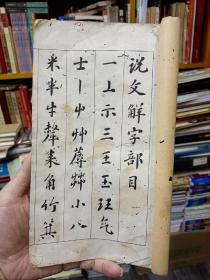 说文解字部目
一上示三王玉珏气
士丨屮艸蓐茻小八
釆半牛犛耒角竹箕